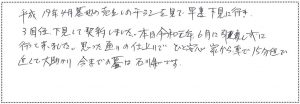 平成19年4月墓地の売出しのチラシを見て早速下見に行き
3回位下見して契約しました。本日令和元年6月に
行って来ました。思った通りの仕上りでひと安心 家から車で15分位で
近くて大助かり 今までの墓は石川県です。